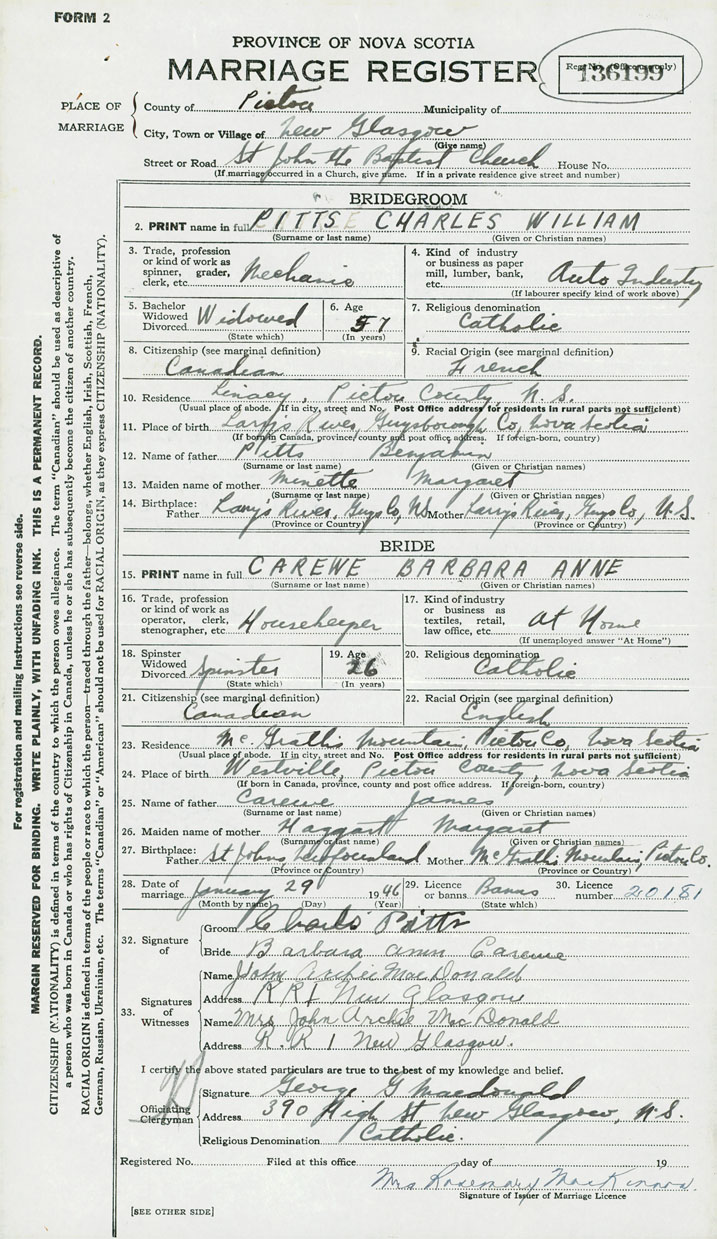 FORM 2
PROVINCE OF NOVA SCOTIA
MARRIAGE REGISTER
Reg. No. (Office use only)
136199
PLACE OF MARRIAGE
County of Pictou Municipality of
City, Town or Village of New Glasgow
(Give name)
Street or Road St John the Baptist Church House No.
(If marriage occurred in a Church, give name. If in a private residence give street and number)
BRIDEGROOM
2. PRINT name in full PITTS CHARLES WILLIAM
(Surname or last name) (Given or Christian names)
3. Trade, profession or kind of work as spinner, grader, clerk, etc. Mechanic
4. Kind of industry or business as paper mill, lumber, bank, etc. Auto Industry
(If labourer specify kind of work above)
5. Bachelor Widowed Divorced Widowed
(State which)
6. Age 57
(In years)
7. Religious denomination Catholic
8. Citizenship (see marginal definition) Canadian
9. Racial Origin (see marginal definition) French
10. Residence Linacy, Pictou County, N. S.
(Usual place of abode. If in city, street and No. Post Office address for residents in rural parts not sufficient)
11. Place of birth Larrys River, Guysborough Co, Nova Scotia
(If born in Canada, province/county and post office address. If foreign-born, country)
12. Name of father Pitts Benjamin
(Surname or last name) (Given or Christian names)
13. Maiden name of mother Minette Margaret
(Surname or last name) (Given or Christian names)
14. Birthplace: Father Larry's River, Guys Co, NS Mother Larry's River, Guys Co, N.S.
(Province or Country) (Province or Country)
BRIDE
15. PRINT name in full CAREWE BARBARA ANNE
(Surname or last name) (Given or Christian names)
16. Trade, profession or kind of work as operator, clerk, stenographer, etc. Housekeeper
17. Kind of industry or business as textiles, retail, law office, etc. At Home
(If unemployed answer "At Home")
18. Spinster Widowed Divorced Spinster
(State which)
19. Age 26
(In years)
20. Religious denomination Catholic
21. Citizenship (see marginal definition) Canadian
22. Racial Origin (see marginal definition) English
23. Residence Mc Graths Mountain, Pictou Co, Nova Scotia
(Usual place of abode. If in city, street and No. Post Office address for residents in rural parts not sufficient)
24. Place of birth Westville, Pictou County, Nova Scotia
(If born in Canada, province, county and post office address. If foreign-born, country)
25. Name of father Carewe James
(Surname or last name) (Given or Christian names)
26. Maiden name of mother Haggart Margaret
(Surname or last name) (Given or Christian names)
27. Birthplace: Father St Johns Newfoundland Mother Mc Graths Mountain, Pictou Co.
(Province or Country) (Province or Country)
28. Date of marriage January 29 1946
(Month by name) (Day) (Year)
29. Licence or banns Banns
(State which)
30. Licence number 20181
32. Signature of
Groom Charls Pitts
Bride Barbara ann Carewe
33. Signatures of Witnesses
Name John Archie MacDonald
Address R R 1 New Glasgow
Name Mrs John Archie MacDonald
Address R. R 1 New Glasgow.
I certify the above stated particulars are true to the best of my knowledge and belief.
Officiating Clergyman
Signature George G Macdonald
Address 390 High St New Glasgow, N.S.
Religious Denomination Catholic.
Registered No. Filed at this office day of 19
Mrs Rosemary MacKinnon.
Signature of Issuer of Marriage Licence
[SEE OTHER SIDE]
For registration and mailing instructions see reverse side.
MARGIN RESERVED FOR BINDING. WRITE PLAINLY, WITH UNFADING INK. THIS IS A PERMANENT RECORD.
CITIZENSHIP (NATIONALITY) is defined in terms of the country to which the person owes allegiance. The term "Canadian" should be used as descriptive of
a person who was born in Canada or who has rights of Citizenship in Canada, unless he or she has subsequently become the citizen of another country.
RACIAL ORIGIN is defined in terms of the people or race to which the person—traced through the father—belongs, whether English, Irish, Scottish, French,
German, Russian, Ukrainian, etc. The terms "Canadian" or "American" should not be used for RACIAL ORIGIN, as they express CITIZENSHIP (NATIONALITY).